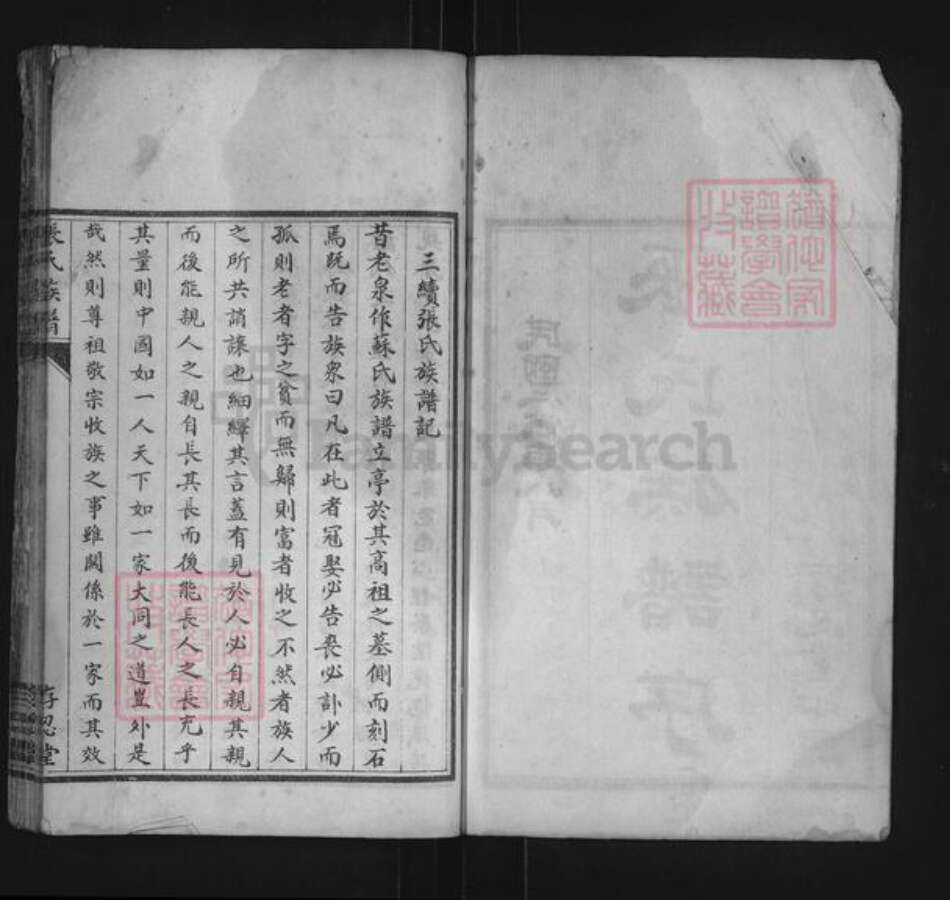 三續張氏族譜記
昔老泉作蘇氏族譜立亭於其高祖之墓側而刻石
焉既而告族衆曰凡在此者冠娶必告喪必訃少而
孤則老者字之貧而無歸則富者收之不然者族人
之所共誚讓也細繹其言蓋有見於人必自親其親
而後能親人之親自長其長而後能長人之長充乎
其量則中國如一人天下如一家大同之道豈外是
哉然則尊祖敬宗收族之事雖關係於一家而其效
張氏族譜
存忍堂
譜學會
收藏
FamilySearch